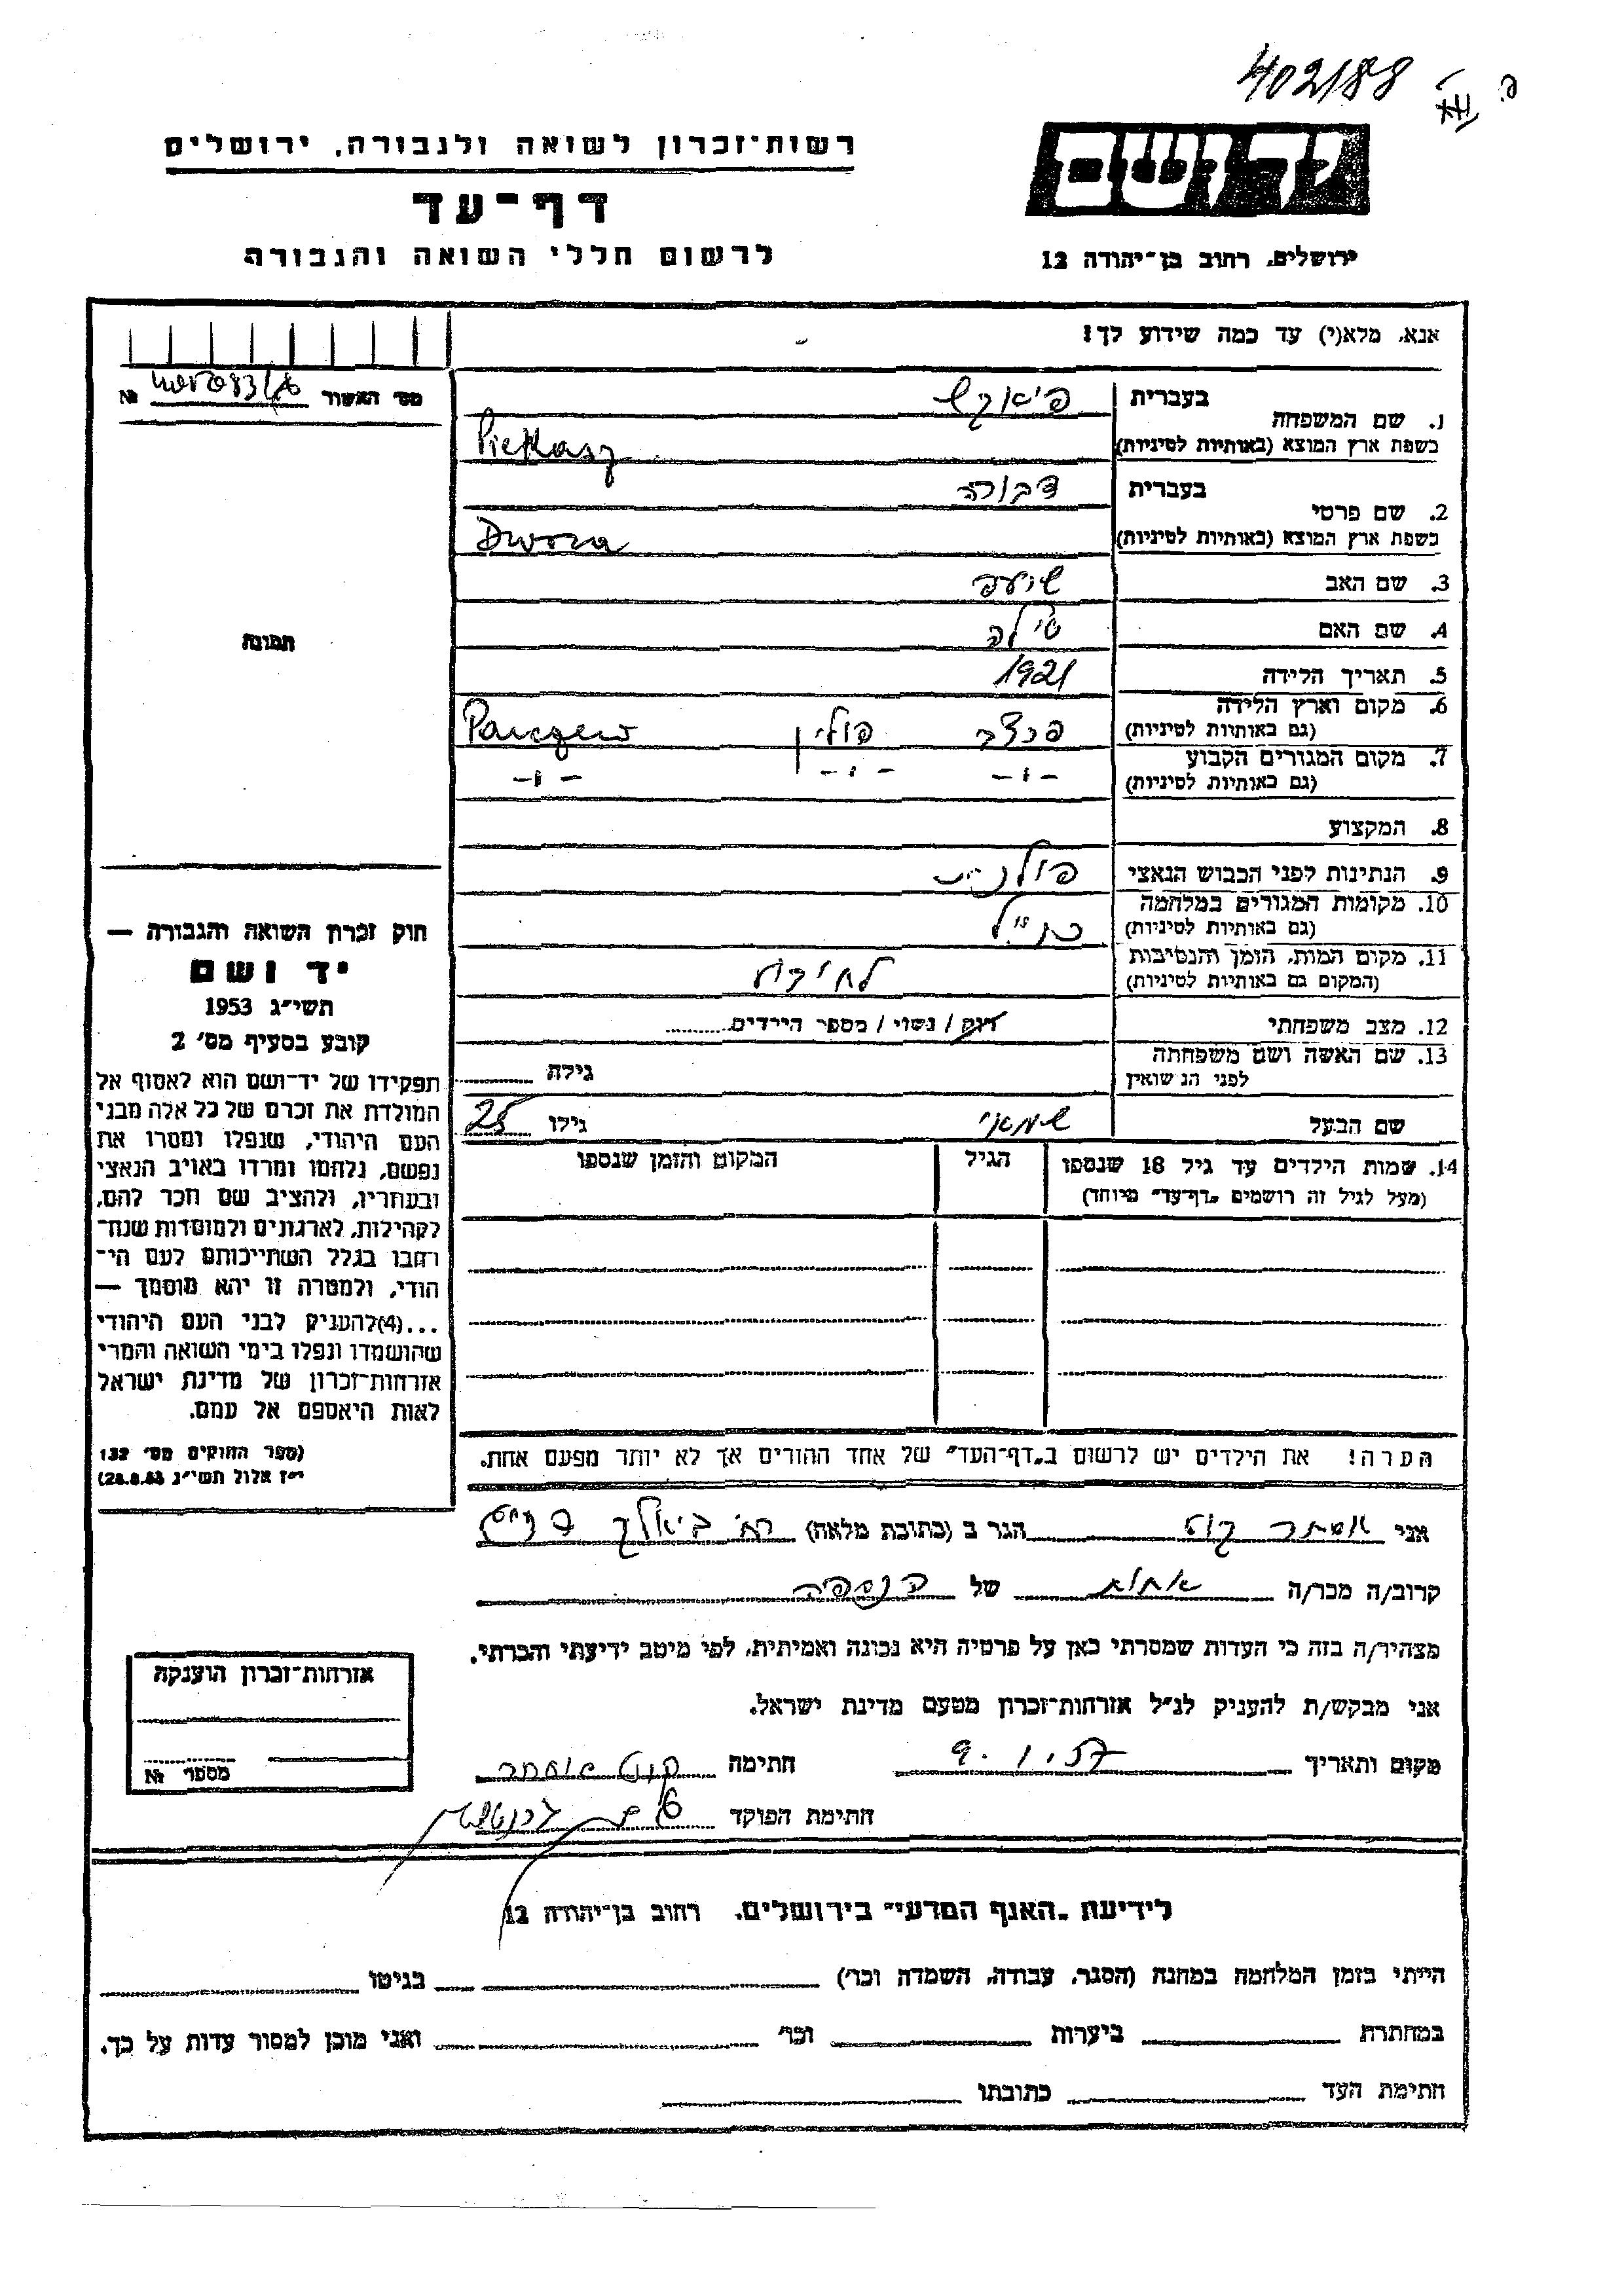 402/88
רשות־זכרון לשואה ולגבורה, ירושלים
דף־עד
לרשום חללי השואה והגבורה
יד ושם
ירושלים, רחוב בן־יהודה 12
אנא, מלא(י) עד כמה שידוע לך!
מס׳ האשור №
1. שם המשפחה
בעברית
כשפת ארץ המוצא (באותיות לטיניות)
Piekasz
2. שם פרטי
בעברית דבורה
כשפת ארץ המוצא (באותיות לטיניות)
Dwora
3. שם האב
4. שם האם
5. תאריך הלידה 1921
6. מקום וארץ הלידה
(גם באותיות לטיניות)
פולין Parczew
7. מקום המגורים הקבוע
(גם באותיות לטיניות)
-"- -"- -"-
8. המקצוע
9. הנתינות לפני הכבוש הנאצי פולנית
10. מקומות המגורים במלחמה
(גם באותיות לטיניות)
כנ"ל
11. מקום המות, הזמן והנסיבות
(המקום גם באותיות לטיניות)
12. מצב משפחתי רווק / נשוי / מספר הילדים
13. שם האשה ושם משפחתה
לפני הנשואין
גילה
שם הבעל
גילו 25
14. שמות הילדים עד גיל 18 שנספו
(מעל לגיל זה רושמים „דף־עד" מיוחד)
הגיל
המקום והזמן שנספו
הערה! את הילדים יש לרשום ב„דף־העד" של אחד ההורים אך לא יותר מפעם אחת.
תמונה
חוק זכרון השואה והגבורה —
יד ושם
תשי״ג 1953
קובע בסעיף מס׳ 2
תפקידו של יד־ושם הוא לאסוף אל
המולדת את זכרם של כל אלה מבני
העם היהודי, שנפלו ומסרו את
נפשם, נלחמו ומרדו באויב הנאצי
ובעוזריו, ולהציב שם וזכר להם,
לקהילות, לארגונים ולמוסדות שנח־
רחבו בגלל השתייכותם לעם הי־
הודי, ולמטרה זו יהא מוסמך —
...(4)להעניק לבני העם היהודי
שהושמדו ונפלו בימי השואה והמרי
אזרחות־זכרון של מדינת ישראל
לאות היאספם אל עמם.
(ספר החוקים מס׳ 132
י״ז אלול תשי״ג 28.8.53)
אני אסתר הגר ב (כתובת מלאה)
קרוב/ה מכר/ה אחות של הנספה
מצהיר/ה בזה כי העדות שמסרתי כאן על פרטיה היא נכונה ואמיתית, לפי מיטב ידיעתי והכרתי.
אני מבקש/ת להעניק לנ״ל אזרחות־זכרון מטעם מדינת ישראל.
מקום ותאריך 9.1.57 חתימה
חתימת הפוקד
אזרחות־זכרון הוענקה
מספר №
לידיעת „האגף המדעי" בירושלים, רחוב בן־יהודה 12
הייתי בזמן המלחמה במחנה (הסגר, עבודה, השמדה וכו׳) בגיטו
במחתרת ביערות וכו׳ ואני מוכן למסור עדות על כך.
חתימת העד כתובתו